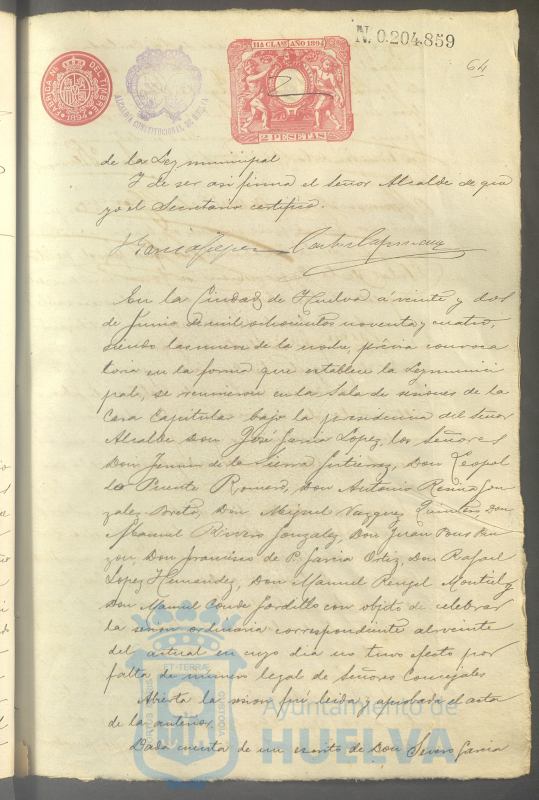 N. 0.204.859
64
FABRICA NL. DEL TIMBRE
1894
ALCALDIA CONSTITUCIONAL DE HUELVA
11ª CLASE AÑO 1894
2 PESETAS
de la Ley municipal
Y de ser asi firma el Señor Alcalde de que
yo el Secretario certifico.
En la Ciudad de Huelva á veinte y dos
de Junio de mil ochocientos noventa y cuatro,
siendo las nueve de la noche, prévia convoca
toria en la forma que establece la Ley munici
pal, se reunieron en la Sala de sesiones de la
Casa Capitular bajo la presidencia del Señor
Alcalde Don José García Lopez, los Señores
Don Fermin de la Sierra Gutierrez, Don Leopol
do Puente Romero, Don Antonio Resina Gon
zalez Prieto, Don Miguel Vazquez Quintero, Don
Manuel Rivero Gonzalez, Don Juan Pous Pin
zon, Don Francisco de P. Garcia Ortiz, Don Rafael
Lopez Hernandez, Don Manuel Rengel Montiel y
Don Manuel Conde Gordillo con objeto de celebrar
la sesion ordinaria correspondiente al veinte
del actual en cuyo dia no tuvo efecto por
falta de número legal de Señores Concejales
Abierta la sesion fué leida y aprobada el acta
de la anterior
Dada cuenta de un escrito de Don Severo Garcia
ET TERRAE
Ayuntamiento de
HUELVA